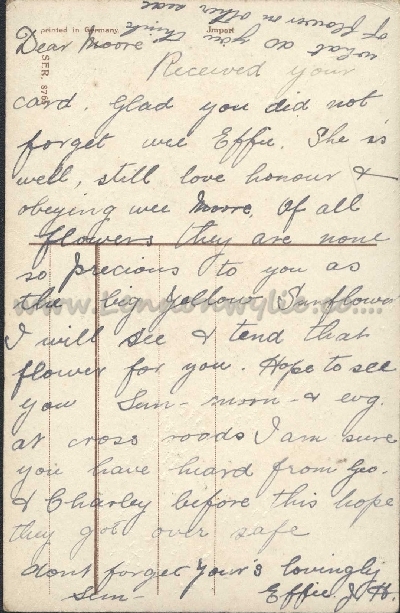 what do you think
of flower on other side
printed in Germany
Import
SFR. 876
Dear Moore
Received your
card. Glad you did not
forget wee Effie. She is
well, still love honour &
obeying wee Moore. Of all
flowers they are none
so precious to you as
the big yellow Sunflower
I will see & tend that
flower for you. Hope to see
you Sun- morn- & evg.
at cross roads I am sure
you have heard from Geo.
& Charley before this hope
they got over safe
dont forget Yours lovingly
Sun- Effie J. H.